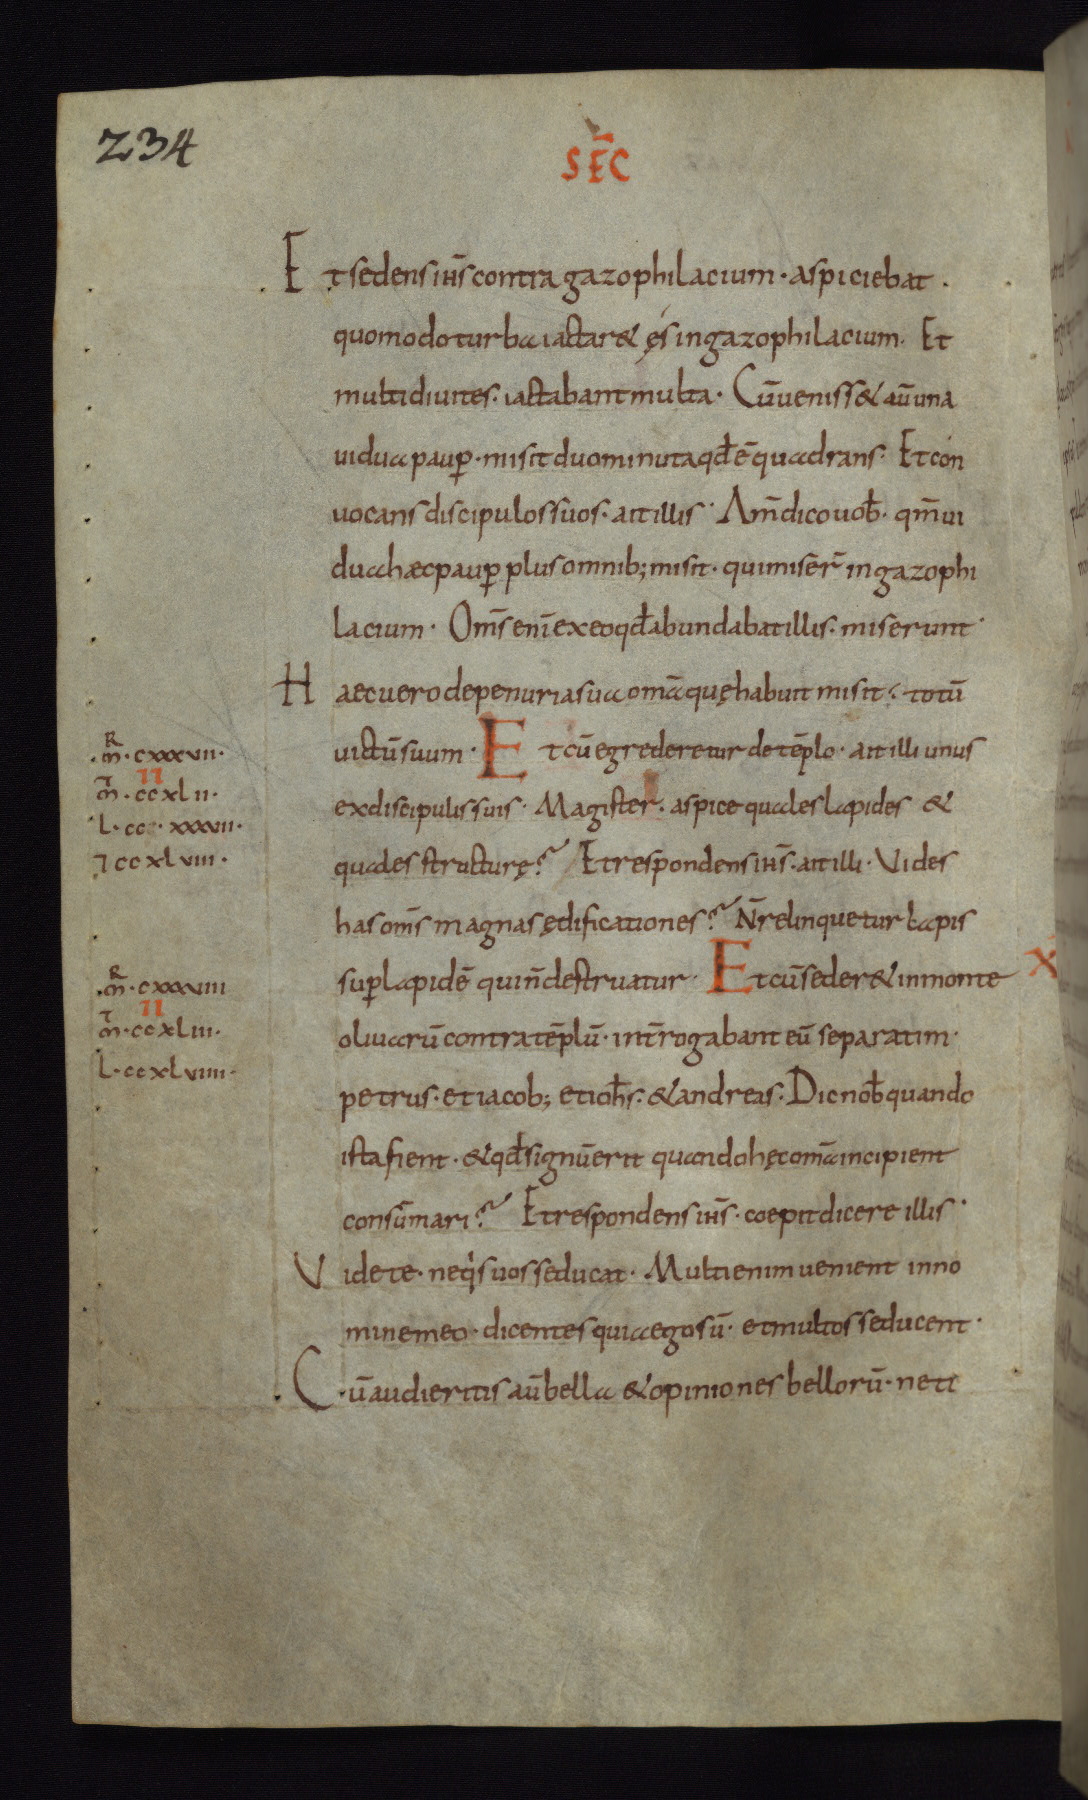 234
SEC̄
Et sedens ih̄s contra gazophilacium · aspiciebat ·
quomodo turba iactar& ęs in gazophilacium · Et
multi diuites · iactabant multa · Cū veniss& aū una
uidua paup̄ · misit duo minuta qđ ē quadrans · Et con
vocans discipulos suos · ait illis · Am̄ dico vob̄ · qm̄ ui
dua haec paup̄ plus omnib; misit · qui miser̄ in gazophi
lacium · Om̄s enī ex eo qđ abundabat illis · miserunt ·
Haec uero de penuria sua om̄a quę habuit misit · totū
uictū suum · Et cū egrederetur de tēplo · ait illi unus
ex discipulis suis · Magister · aspice quales lapides &
quales structurę? Et respondens ih̄s · ait illi · Vides
has om̄s magnas ędificationes? N̄ relinquetur lapis
sup̄ lapidē qui n̄ destruatur · Et cū seder& in monte
oliuarū contra tēplū · int̄rogabant eū separatim ·
petrus · et iacob; et ioh̄s · & andreas · Dic nob̄ quando
ista fient · & qđ signū erit quando hęc om̄a incipient
consūmari? Et respondens ih̄s · coepit dicere illis ·
Videte · ne q̇s uos seducat · Multi enim uenient in no
mine meo · dicentes quia ego sū · et multos seducent ·
Cū audieritis aū bella & opiniones bellorū · ne ti
·m̄R · cxxxvii ·
II
m̄T · ccxlii ·
L · cc · xxxvii ·
⁊ ccxlviii ·
·m̄R · cxxxviii
II
m̄T · ccxliii ·
L · ccxlviiii ·
X